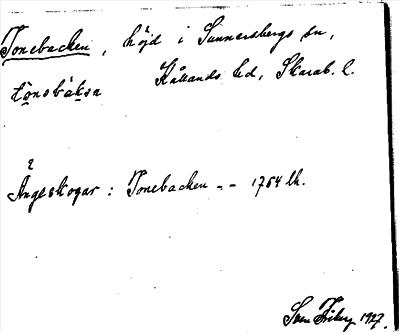 Tonebacken, höjd i Sunnersbergs sn,
Kållands hd, Skarab. l.
tònsbàksa
2
Ängeskogar : Tonebacken -- 1764 lh.
Sven Friberg 1927.